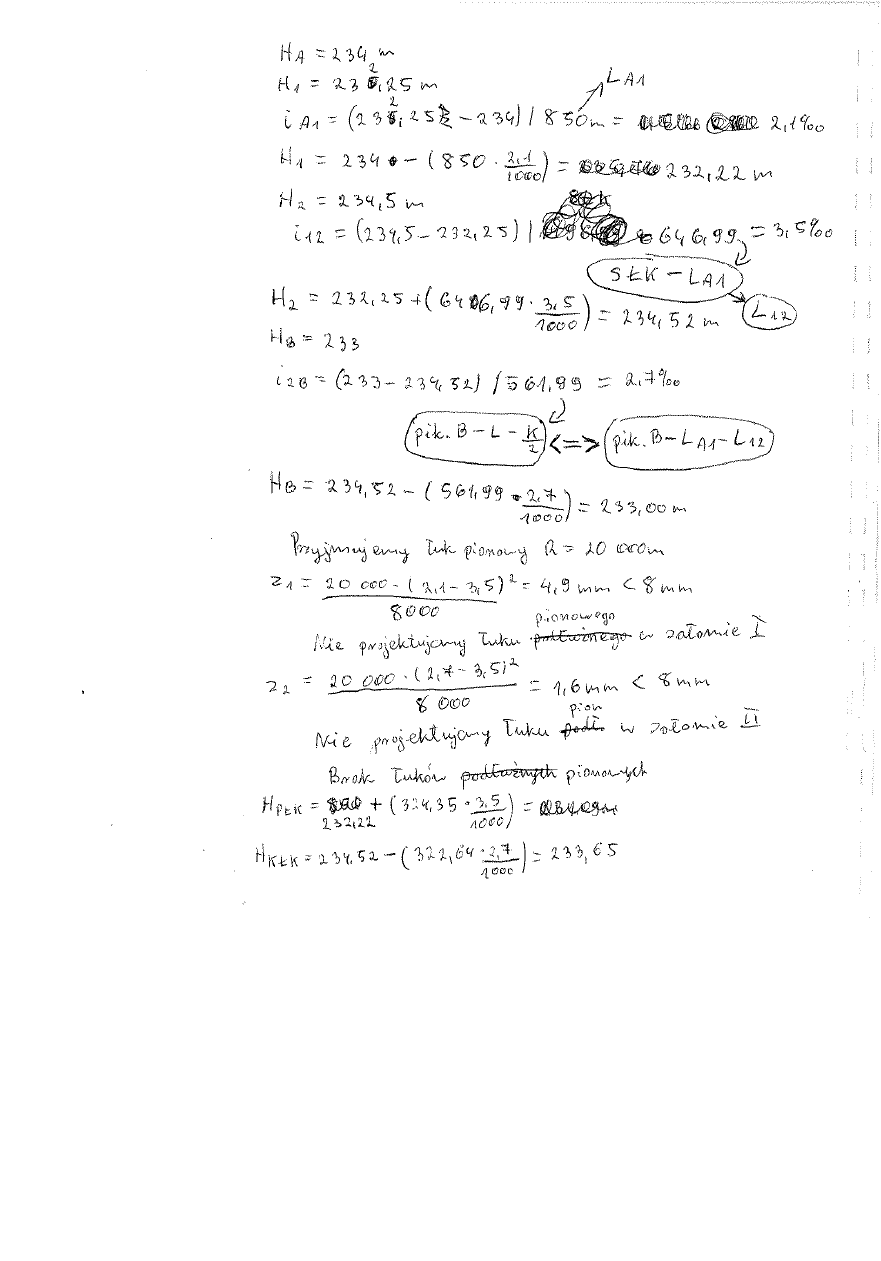 H_A = 234 m
H_1 = 232,25 m
L_A1
i_A1 = (232,25 - 234) / 850m = 2,1‰
H_1 = 234 - (850 · 2,1/1000) = 232,22 m
H_2 = 234,5 m
i_12 = (234,5 - 232,25) / 646,99 = 3,5‰
SŁK - L_A1
H_2 = 232,25 + (646,99 · 3,5/1000) = 234,52 m
L_12
H_B = 233
i_2B = (233 - 234,52) / 561,99 = 2,7‰
pik. B - L - K/2 <=> pik. B - L_A1 - L_12
H_B = 234,52 - (561,99 · 2,7/1000) = 233,00 m
Przyjmujemy łuk pionowy R = 20 000m
z_1 = 20 000 · (2,1 - 3,5)² / 8000 = 4,9 mm < 8 mm
Nie projektujemy łuku pionowego w załomie I
z_2 = 20 000 · (2,7 - 3,5)² / 8 000 = 1,6 mm < 8 mm
Nie projektujemy łuku pion w załomie II
Brak łuków pionowych
H_PŁK = 232,22 + (324,35 · 3,5/1000) =
H_KŁK = 234,52 - (322,64 · 2,7/1000) = 233,65